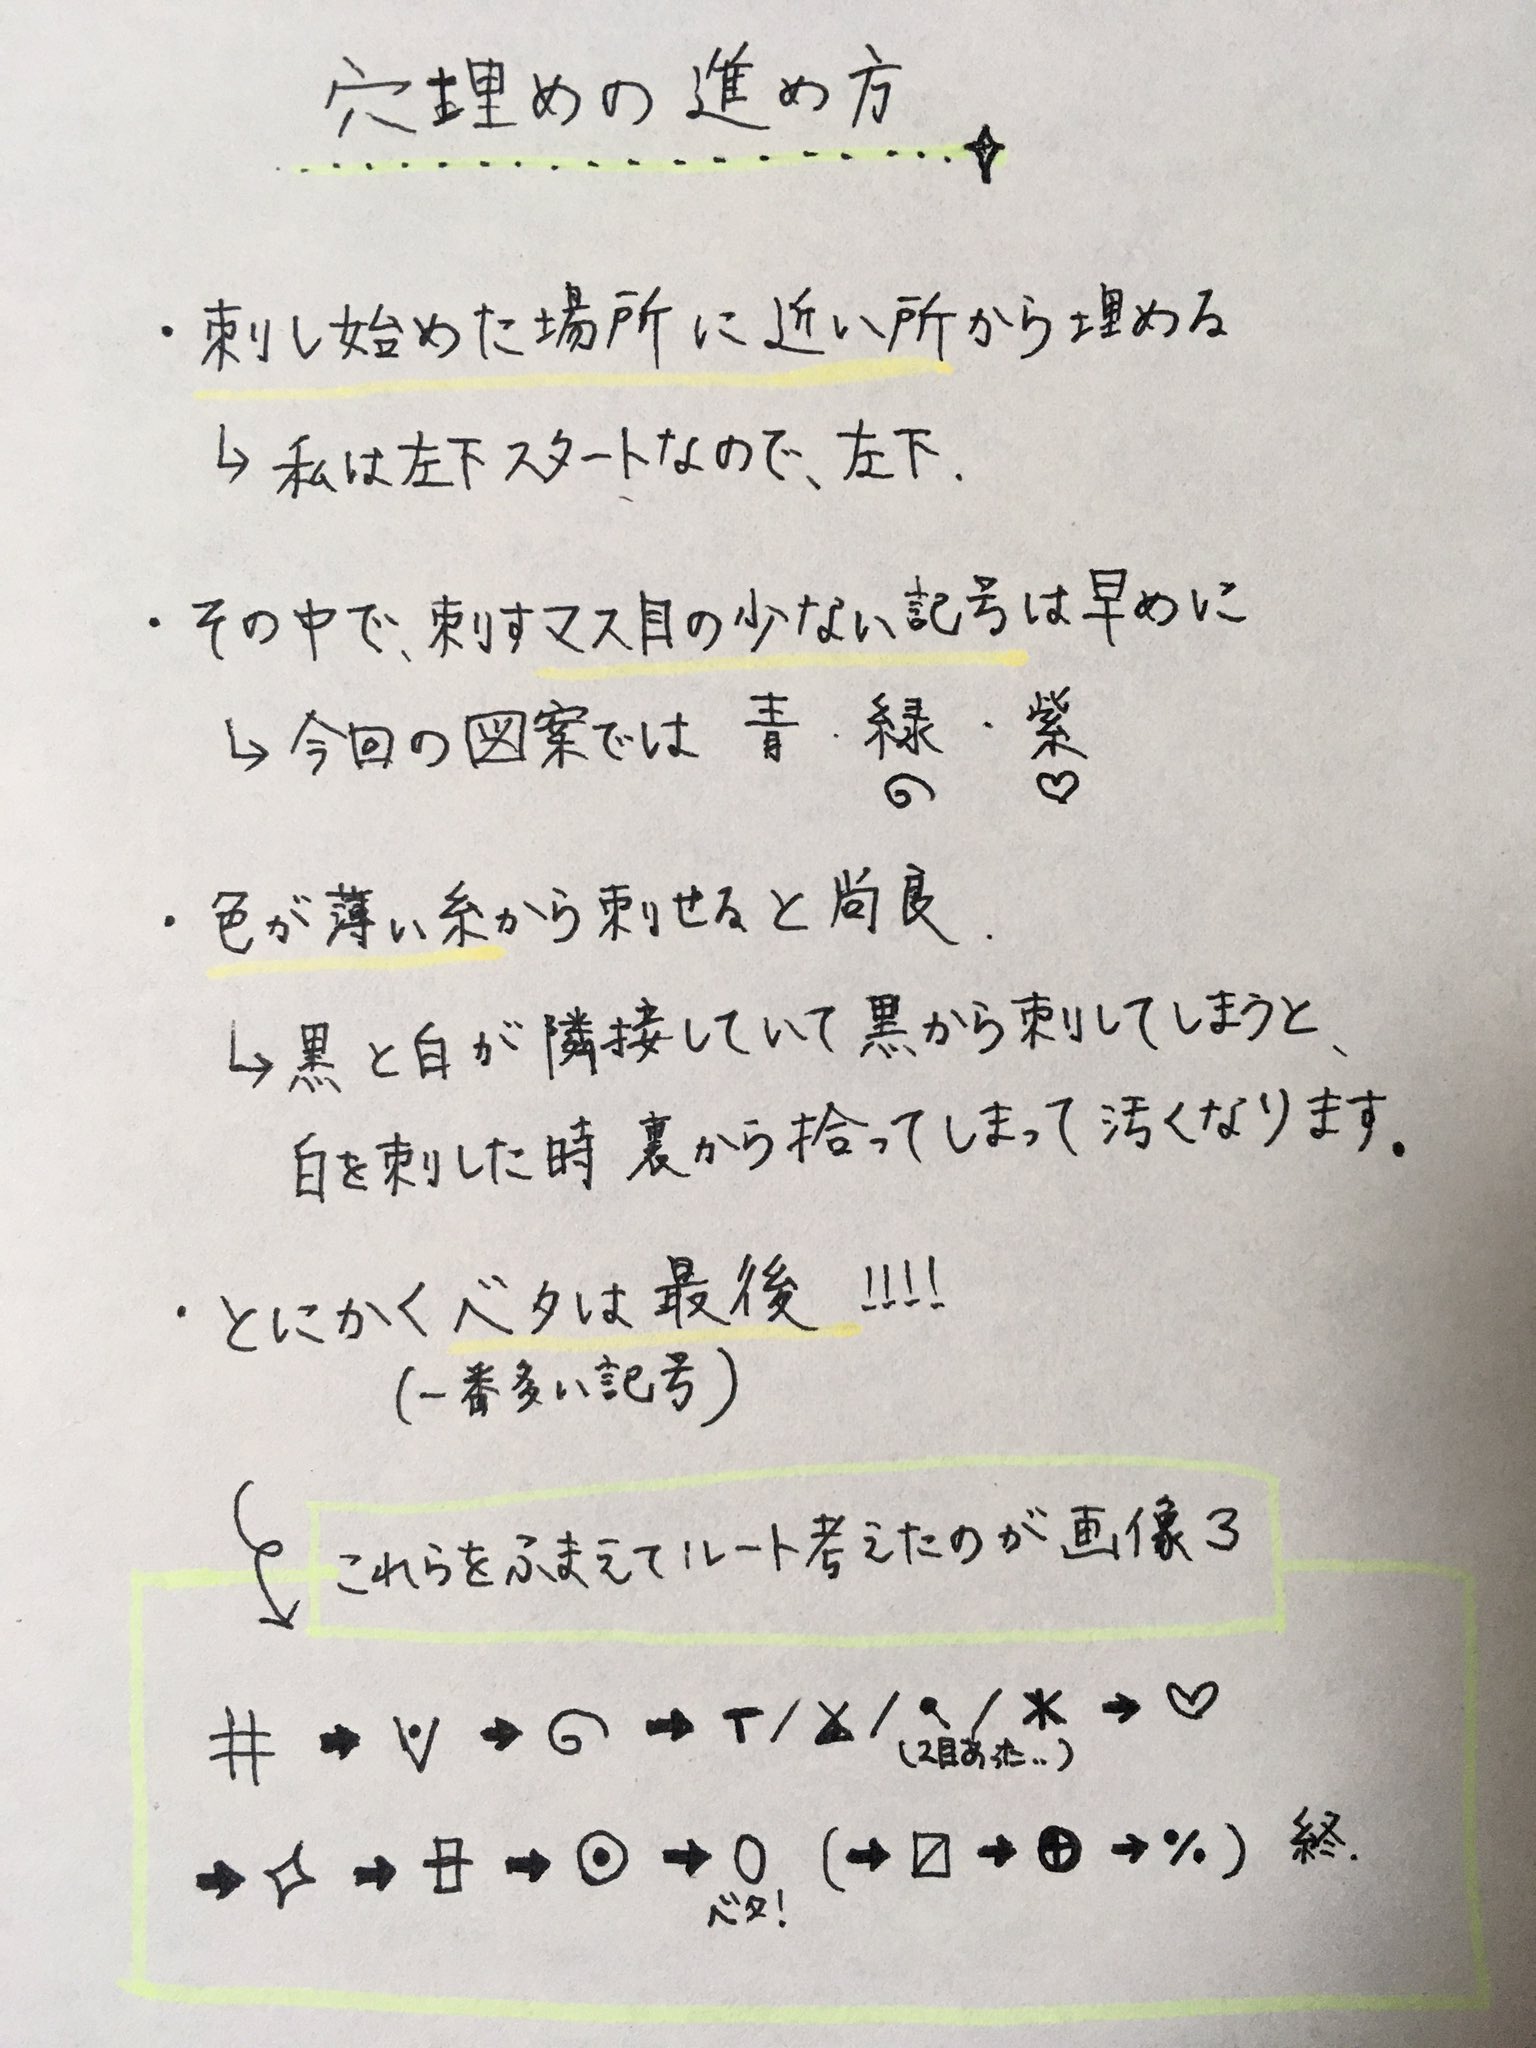 穴埋めの進め方
・刺し始めた場所に近い所から埋める
↳私は左下スタートなので、左下.
・その中で、刺すマス目の少ない記号は早めに
↳今回の図案では 青・緑・紫
♡
・色が薄い糸から刺せると尚良.
↳黒と白が隣接していて黒から刺してしまうと、
白を刺した時 裏から拾ってしまって汚くなります。
・とにかくベタは最後!!!!
(一番多い記号)
これらをふまえてルート考えたのが画像3
# → → → T/ / /* → ♡
(2目あった..)
→ ✧ → → ⊙ → 0 (→ ⍁ → ⊕ → ％) 終.
ベタ!